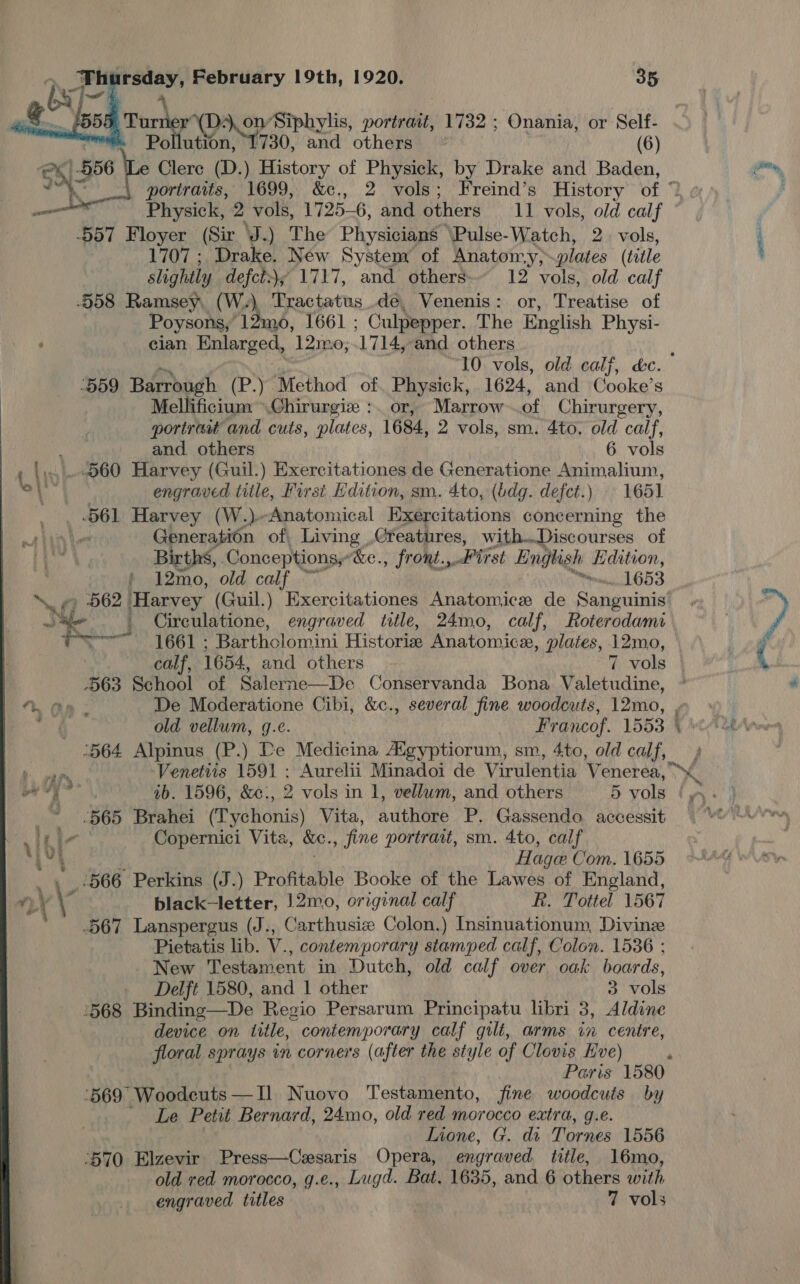 Thursday, February 19th, 1920. 35
555 Turner (D.) on Siphylis, portrait, 1732 ; Onania, or Self-
Pollution, 1730, and others (6)
556 Le Clerc (D.) History of Physick, by Drake and Baden,
portraits, 1699, &c., 2 vols; Freind's History of
Physick, 2 vols, 1725-6, and others 11 vols, old calf
557 Floyer (Sir J.) The Physicians Pulse-Watch, 2 vols,
1707 ; Drake. New System of Anatomy, plates (title
slightly defct.), 1717, and others 12 vols, old calf
558 Ramsey (W.) Tractatus de Venenis : or, Treatise of
Poysons, 12mo, 1661 ; Culpepper. The English Physi-
cian Enlarged, 12mo, 1714, and others
10 vols, old calf, &c.
559 Barrough (P.) Method of Physick, 1624, and Cooke's
Mellificium Chirurgiæ : or, Marrow of Chirurgery,
portrait and cuts, plates, 1684, 2 vols, sm. 4to, old calf,
and others 6 vols
560 Harvey (Guil.) Exercitationes de Generatione Animalium,
engraved title, First Edition, sm. 4to, (bdg. defct.) 1651
561 Harvey (W.) Anatomical Exercitations concerning the
Generation of Living Creatures, with Discourses of
Births, Conceptions, &c., front., First English Edition,
12mo, old calf 1653
562 Harvey (Guil.) Exercitationes Anatomicæ de Sanguinis
Circulatione, engraved title, 24mo, calf, Roterodami
1661 ; Bartholomini Historiæ Anatomicæ, plates, 12mo,
calf, 1654, and others 7 vols
563 School of Salerne—De Conservanda Bona Valetudine,
De Moderatione Cibi, &c., several fine woodcuts, 12mo,
old vellum, g.e. Francof. 1553
564 Alpinus (P.) De Medicina Ægyptiorum, sm, 4to, old calf,
Venetiis 1591 ; Aurelii Minadoi de Virulentia Venerea,
ib. 1596, &c., 2 vols in 1, vellum, and others 5 vols
565 Brahei (Tychonis) Vita, authore P. Gassendo accessit
Copernici Vita, &c., fine portrait, sm. 4to, calf
Hagæ Com. 1655
566 Perkins (J.) Profitable Booke of the Lawes of England,
black-letter, 12mo, original calf R. Tottel 1567
567 Lanspergus (J., Carthusiæ Colon.) Insinuationum Divinæ
Pietatis lib. V., contemporary stamped calf, Colon. 1536 ;
New Testament in Dutch, old calf over oak boards,
Delft 1580, and 1 other 3 vols
568 Binding—De Regio Persarum Principatu libri 3, Aldine
device on title, contemporary calf gilt, arms in centre,
floral sprays in corners (after the style of Clovis Eve)
Paris 1580
569 Woodcuts—Il Nuovo Testamento, fine woodcuts by
Le Petit Bernard, 24mo, old red morocco extra, g.e.
Lione, G. di Tornes 1556
570 Elzevir Press—Cæsaris Opera, engraved title, 16mo,
old red morocco, g.e., Lugd. Bat. 1635, and 6 others with
engraved titles 7 vols